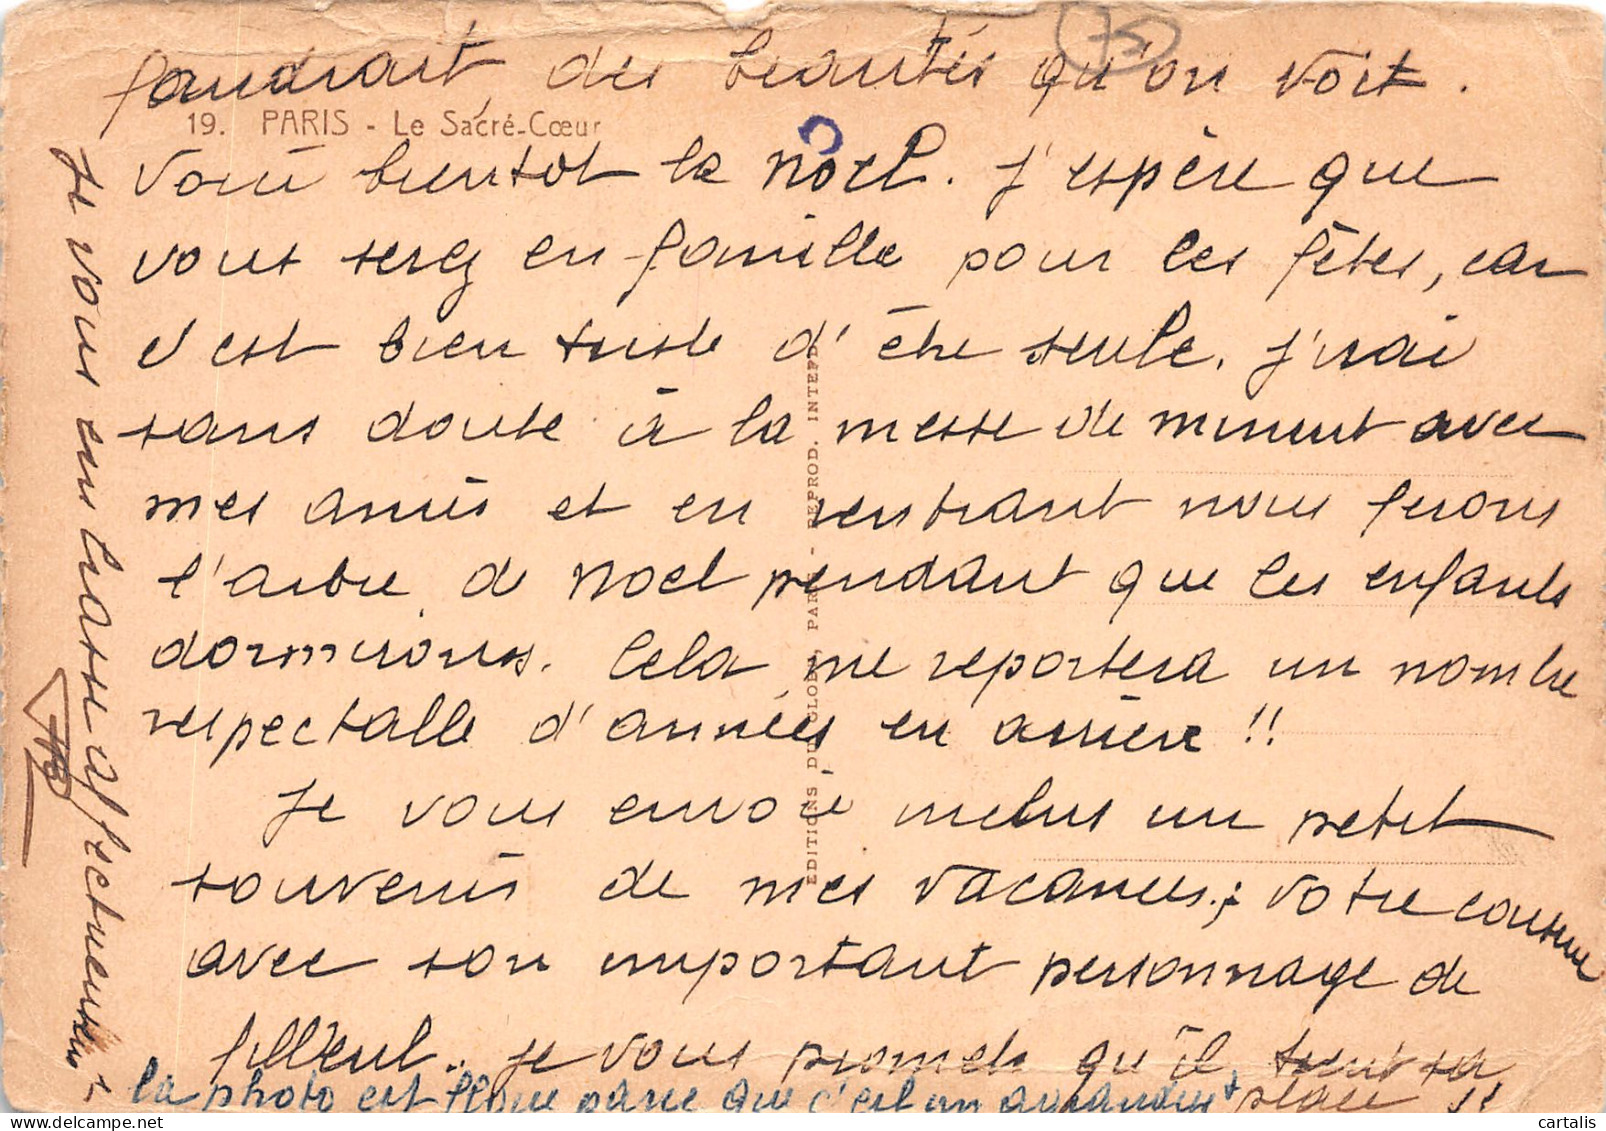 75
faudrait des beautés qu'on voit.
19. PARIS - Le Sacré-Cœur
Voici bientôt la Noël. J'espère que
vous serez en famille pour les fêtes, car
c'est bien triste d'être seule. J'irai
sans doute à la messe de minuit avec
mes amis et en rentrant nous ferons
l'arbre de Noël pendant que les enfants
dormirons. Cela me reportera un nombre
respectable d'années en arrière !!
Je vous envoie inclus un petit
souvenir de mes vacances ; votre cousine
avec son important personnage de
filleul. Je vous promets qu'il tient sa
place !!
la photo est floue parce que c'est un agrandist
Je vous embrasse affectueusement
EDITIONS DU GLOBE, PARIS - REPROD. INTERD.
cartalis